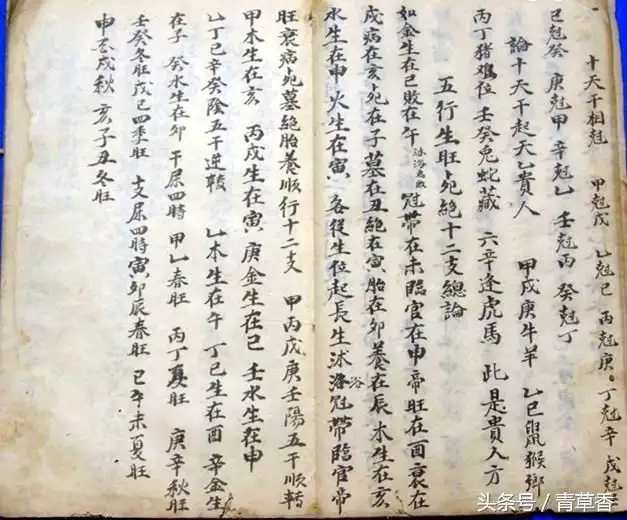 十天干相尅　甲尅戊　乙尅己　丙尅庚　丁尅辛　戊尅壬
己尅癸　庚尅甲　辛尅乙　壬尅丙　癸尅丁
論十天干起天乙貴人　甲戊庚牛羊　乙己鼠猴鄉
丙丁猪雞位　壬癸兔蛇藏　六辛逢虎馬　此是貴人方
五行生旺死絕十二支總論
如金生在巳敗在午沐浴為敗冠帶在未臨官在申帝旺在酉衰在
戌病在亥死在子墓在丑絕在寅胎在卯養在辰木生在亥
水生在申火生在寅各從生位起長生沐浴冠帶臨官帝
旺衰病死墓絕胎養順行十二支　甲丙戊庚壬陽五干順轉
甲木生在亥　丙戊生在寅庚金生在巳壬水生在申
乙丁己辛癸陰五干逆轉　乙木生在午丁己生在酉辛金生
在子癸水生在卯干屬四時甲乙春旺　丙丁夏旺　庚辛秋旺
壬癸冬旺戊己四季旺　十支屬四時寅卯辰春旺　巳午未夏旺
申酉戌秋　亥子丑冬旺
头条号／青草香